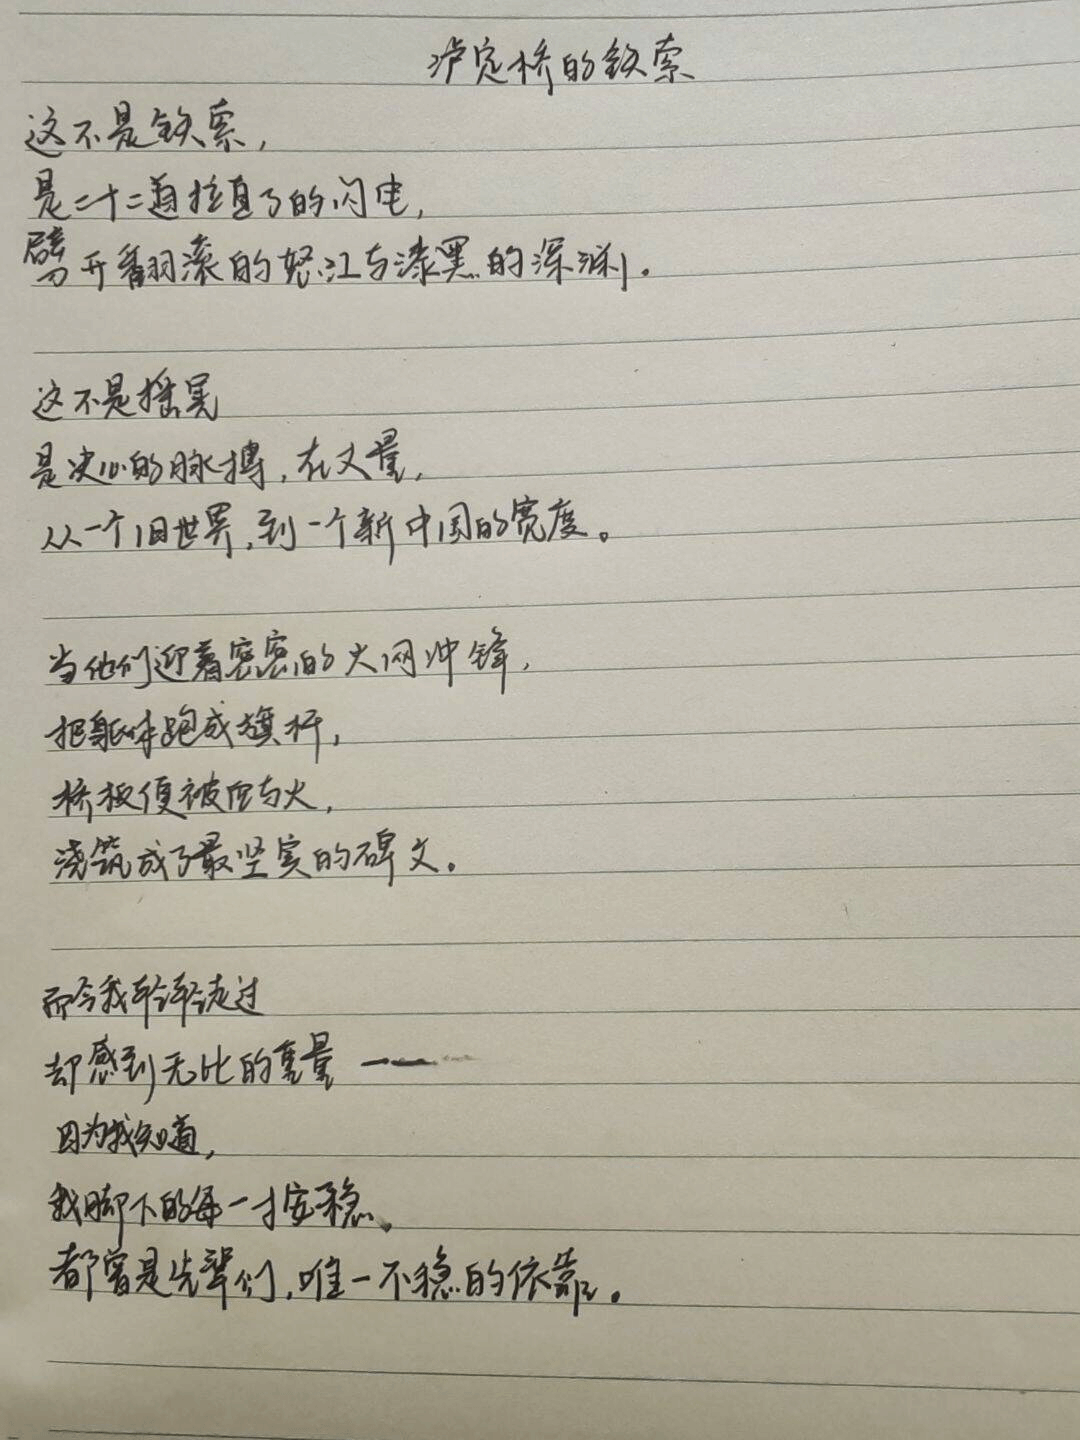 泸定桥的铁索
这不是铁索,
是二十二道拉直了的闪电,
劈开翻滚的怒江与漆黑的深渊。
这不是摇晃
是决心的脉搏,在丈量,
从一个旧世界,到一个新中国的宽度。
当他们迎着密密的火网冲锋,
把躯体跑成旗杆,
桥板便被血与火,
浇筑成了最坚实的碑文。
而今我轻轻走过
却感到无比的重量——
因为我知道,
我脚下的每一寸安稳。
都曾是先辈们,唯一不稳的依靠。